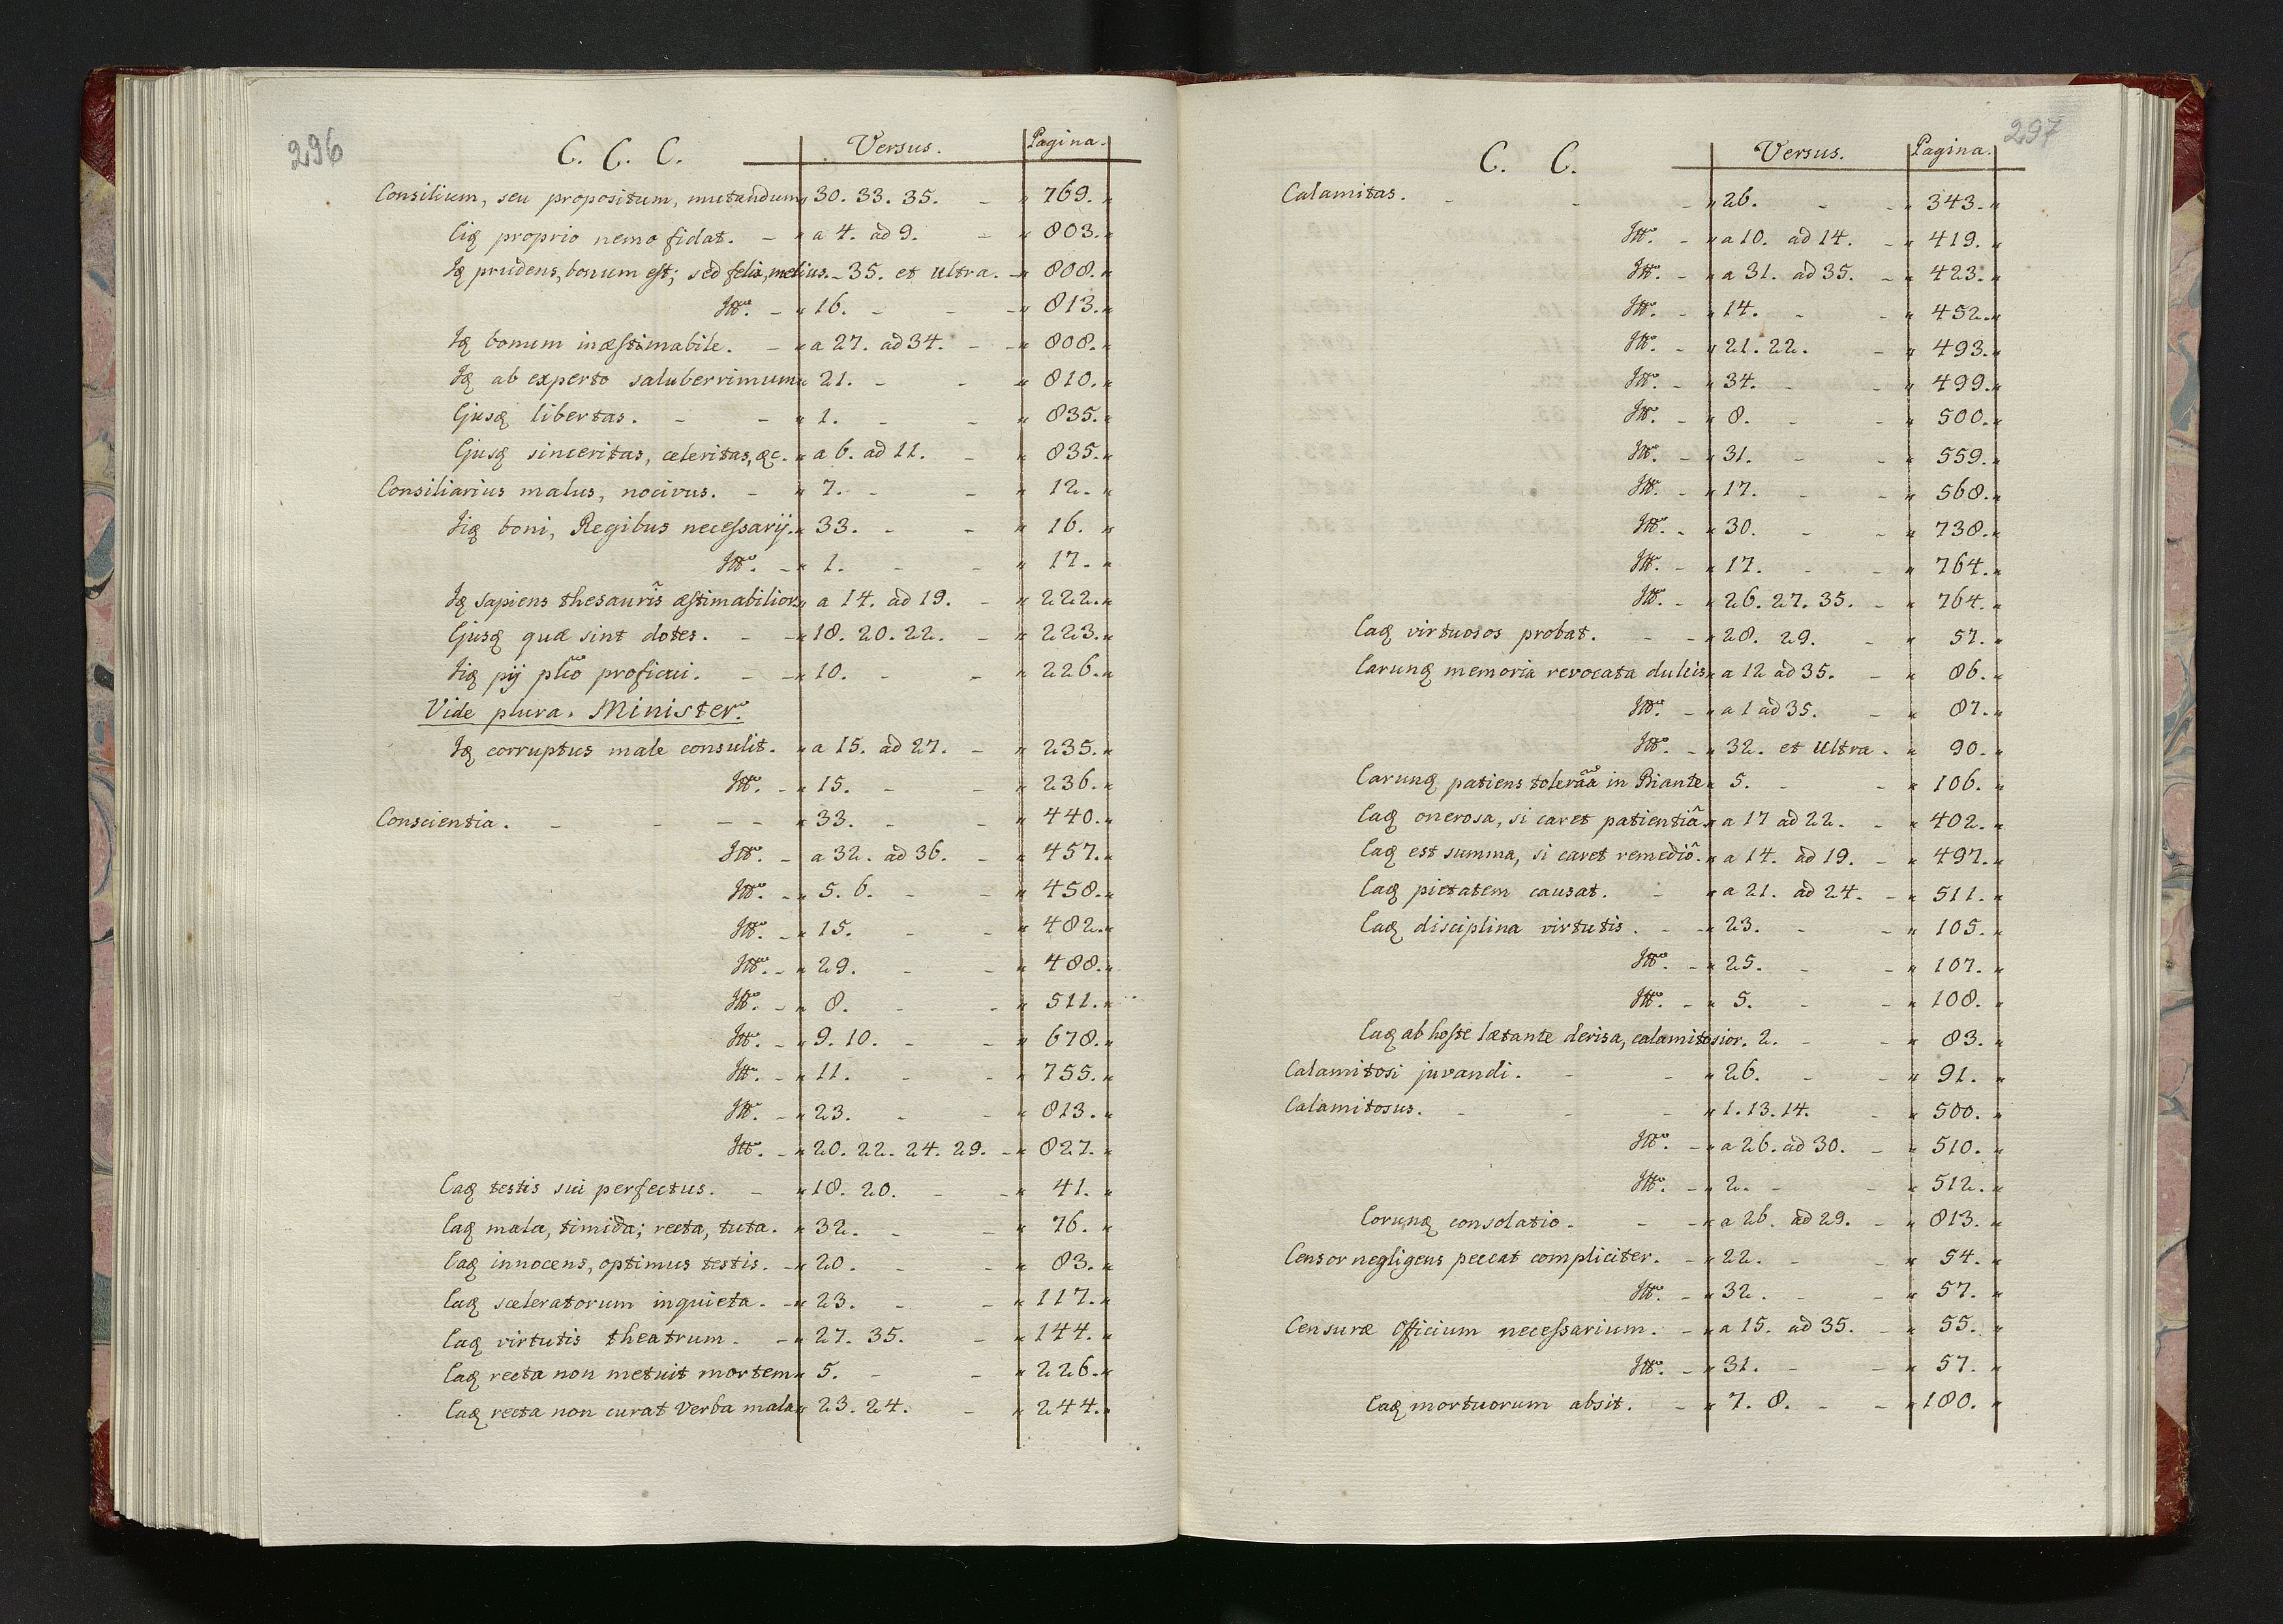 296
C. C. C. Versus. Pagina.
Consilium, seu propositum, mutandum „ 30. 33. 35. - „ 769. „
Iiq proprio nemo fidat. - „ a 4. ad 9. - „ 803. „
Iq prudens, bonum est; sed felix, melius. - 35. et ultra. - „ 808. „
Itt. - „ 16. - - - „ 813. „
Iq bonum inæstimabile. - „ a 27. ad 34. - - „ 808. „
Iq ab experto saluberrimum „ 21. - - „ 810. „
Ejusq libertas. - - „ 1. - - „ 835. „
Ejusq sinceritas, celeritas, &c. „ a 6. ad 11. - „ 835. „
Consiliarius malus, nocivus. - „ 7. - - „ 12. „
Iiq boni, Regibus necessarij. „ 33. - - „ 16. „
Itt. - „ 1. - - „ 17. „
Iq sapiens thesauris æstimabilior „ a 14. ad 19. - „ 222. „
Ejusq quæ sint dotes. - - „ 18. 20. 22. - „ 223. „
Iiq pij plio proficui. - - „ 10. - - „ 226. „
Vide plura. Minister.
Iq corruptus male consulit. „ a 15. ad 27. - „ 235. „
Itt. - „ 15. - - „ 236. „
Conscientia. - - - - „ 33. - - „ 440. „
Itt. - „ a 32. ad 36. - „ 457. „
Itt. - „ 5. 6. - - „ 458. „
Itt. - „ 15. - - „ 482. „
Itt. - „ 29. - - „ 488. „
Itt. - „ 8. - - „ 511. „
Itt. - „ 9. 10. - - „ 678. „
Itt. - „ 11. - - „ 755. „
Itt. - „ 23. - - „ 813. „
Itt. - „ 20. 22. 24. 29. - „ 827. „
Eaq testis sui perfectus. - „ 18. 20. - - „ 41. „
Eaq mala, timida; recta, tuta. „ 32. - - „ 76. „
Eaq innocens, optimus testis. - „ 20. - - „ 83. „
Eaq sceleratorum inquieta. - „ 23. - - „ 117. „
Eaq virtutis theatrum. - „ 27. 35. - „ 144. „
Eaq recta non metuit mortem „ 5. - - „ 226. „
Eaq recta non curat verba mala „ 23. 24. - „ 244. „
297
C. C. Versus. Pagina.
Calamitas. - - - „ 26. - - „ 343. „
Itt. - „ a 10. ad 14. - „ 419. „
Itt. - „ a 31. ad 35. - „ 423. „
Itt. - „ 14. - - „ 452. „
Itt. - „ 21. 22. - „ 493. „
Itt. - „ 34. - - „ 499. „
Itt. - „ 8. - - „ 500. „
Itt. - „ 31. - - „ 559. „
Itt. - „ 17. - - „ 568. „
Itt. - „ 30. - - „ 738. „
Itt. - „ 17. - - „ 764. „
Itt. - „ 26. 27. 35. - „ 764. „
Eaq virtuosos probat. - - „ 28. 29. - „ 57. „
Earunq memoria revocata dulcis „ a 12 ad 35. - „ 86. „
Itt. - „ a 1 ad 35. - „ 87. „
Itt. - „ 32. et ultra. „ 90. „
Earunq patiens toleraa in Biante „ 5. - - „ 106. „
Eaq onerosa, si caret patientiâ „ a 17 ad 22. - „ 402. „
Eaq est summa, si caret remediô. „ a 14. ad 19. - „ 497. „
Eaq pietatem causat. - „ a 21. ad 24. - „ 511. „
Eaq disciplina virtutis. - - „ 23. - - „ 105. „
Itt. - „ 25. - - „ 107. „
Itt. - „ 5. - - „ 108. „
Eaq ab hoste lætante derisa, calamitosior. 2. - - „ 83. „
Calamitosi juvandi. - - „ 26. - - „ 91. „
Calamitosus. - - - „ 1. 13. 14. - „ 500. „
Itt. - „ a 26. ad 30. - „ 510. „
Itt. - „ 2. - - „ 512. „
Eorunq consolatio. - - „ a 26. ad 29. - „ 813. „
Censor negligens peccat compliciter. - „ 22. - - „ 54. „
Itt. - „ 32. - - „ 57. „
Censuræ Officium necessarium. - „ a 15. ad 35. - „ 55. „
Itt. - „ 31. - - „ 57. „
Eaq mortuorum absit. - „ 7. 8. - - „ 180. „